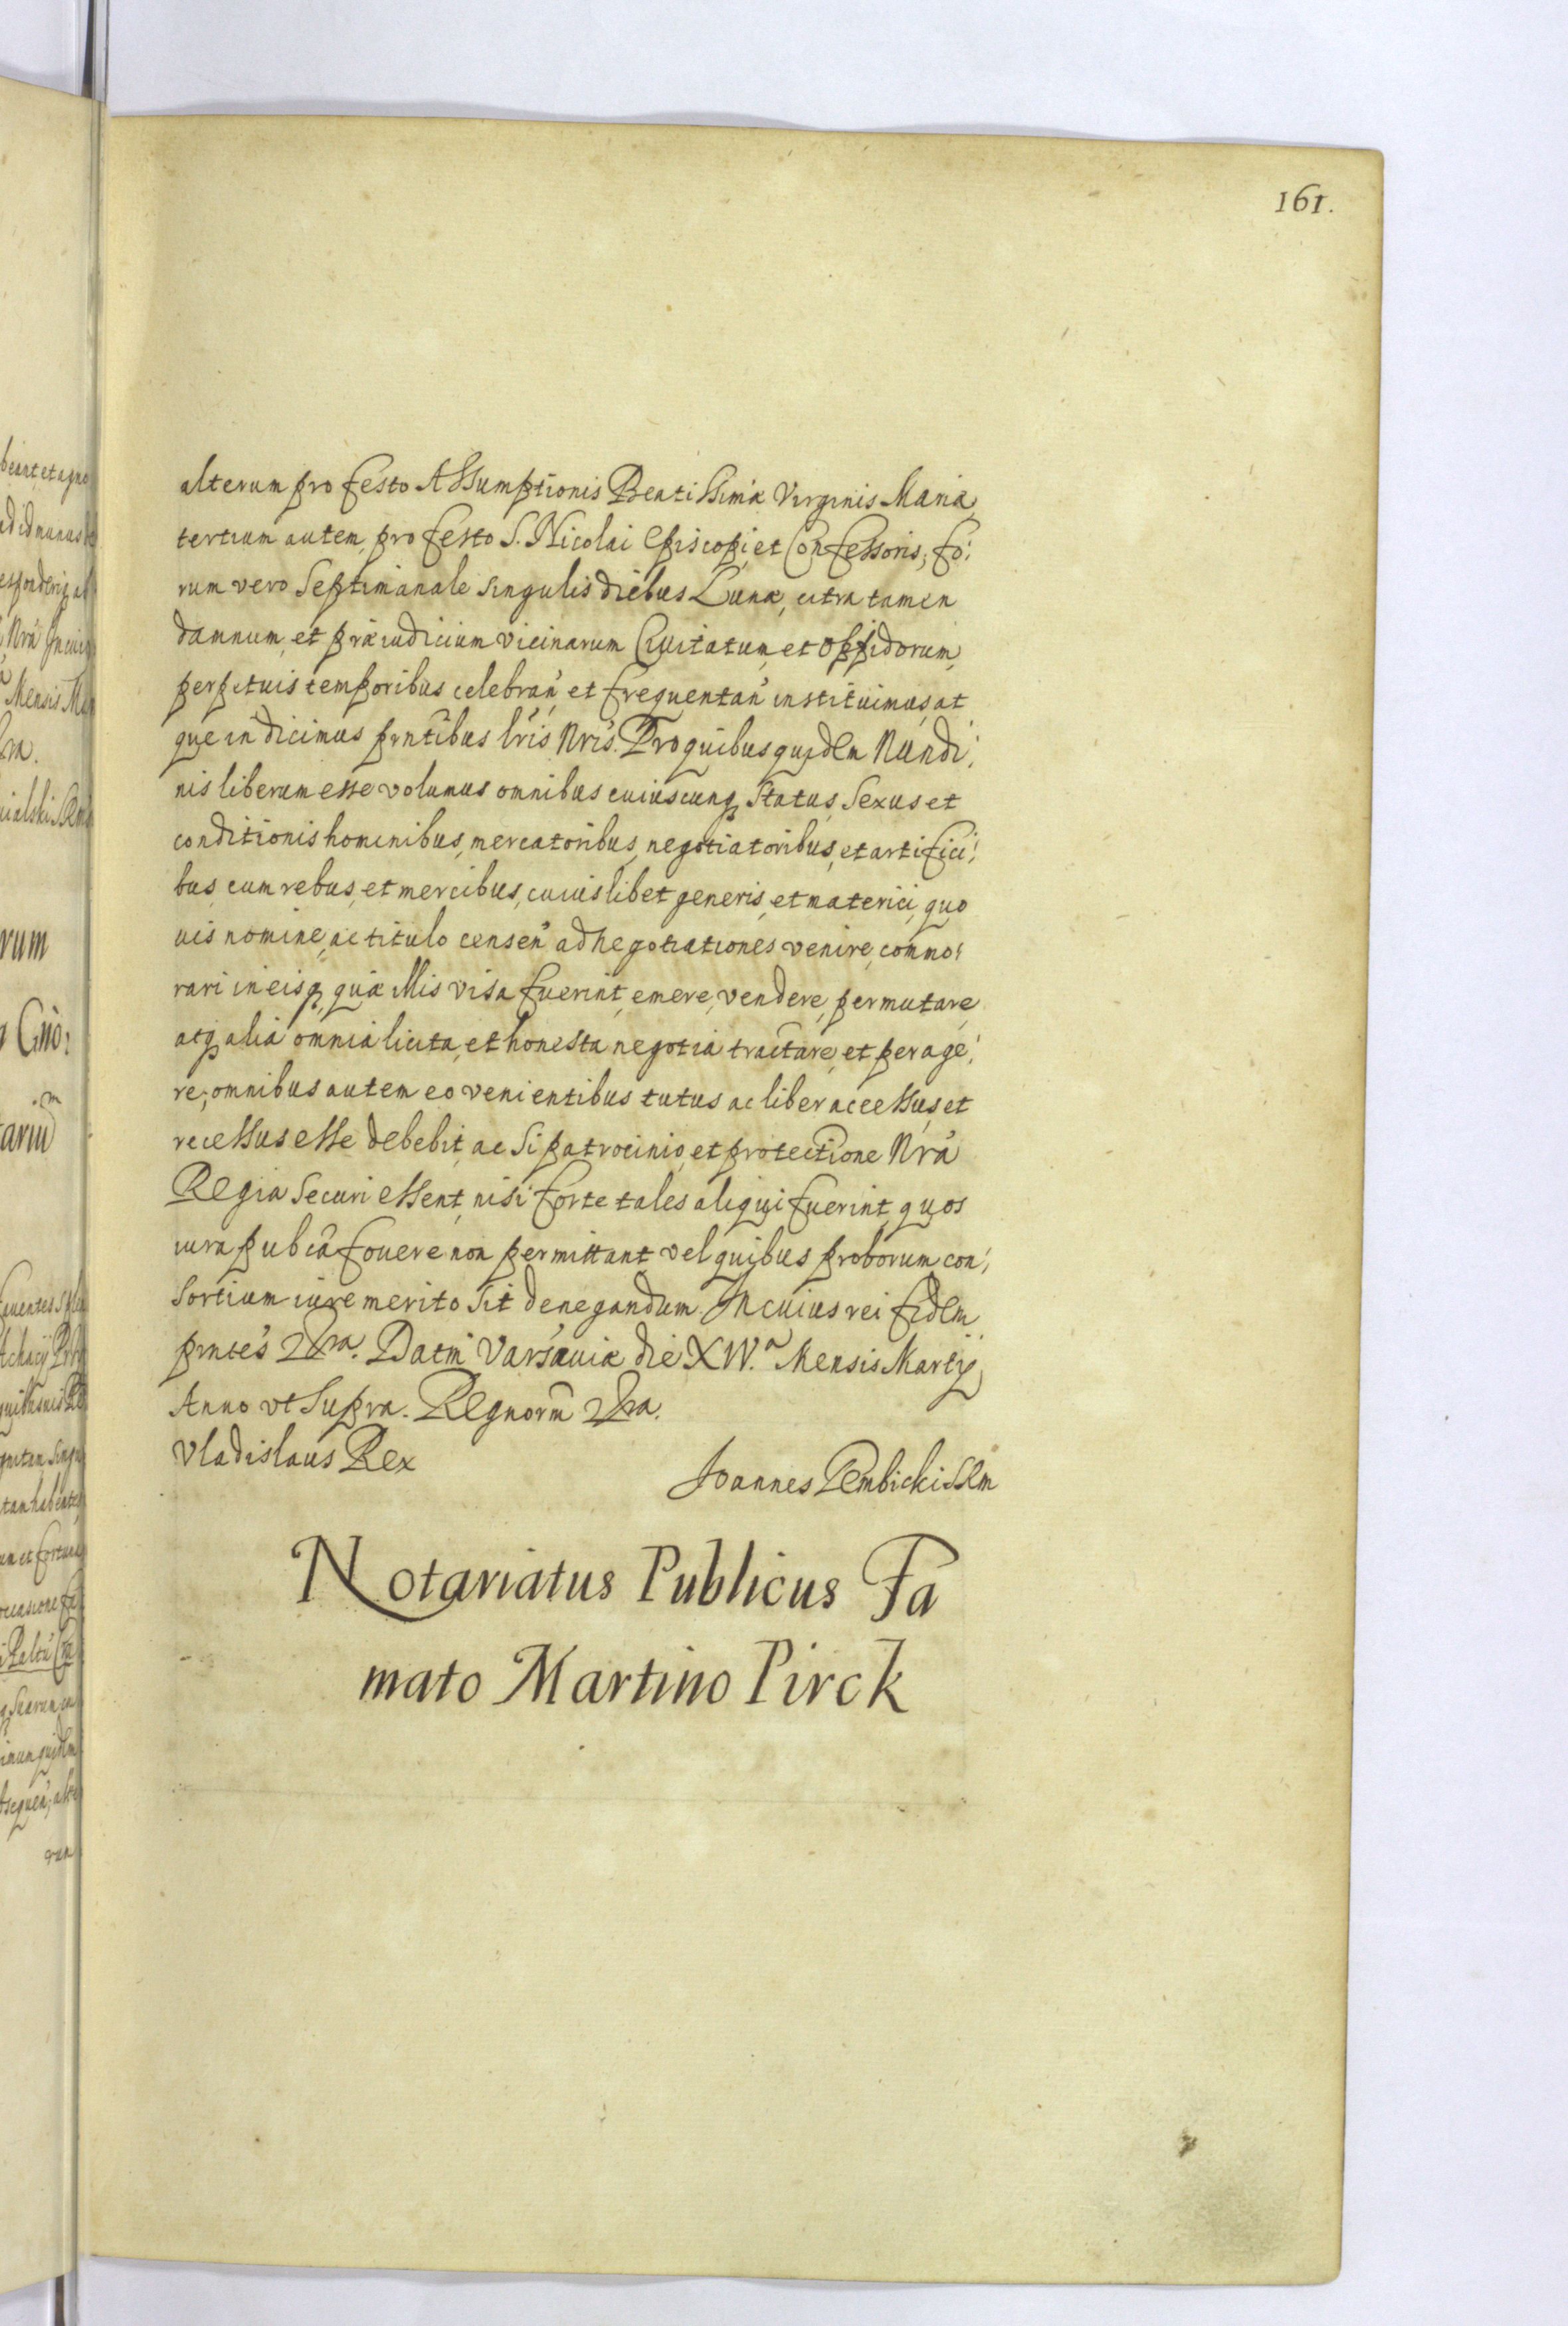 161.
alterum pro festo Assumptionis Beatissimæ Virginis Mariæ,
tertium autem, pro festo S. Nicolai Episcopi, et Confessoris, fo:
rum vero Septimanale singulis diebus Lunæ, citra tamen
damnum, et præiudicium vicinarum Civitatum, et oppidorum,
perpetuis temporibus celebran̄ et frequentan̄ instituimus, at
que indicimus pnt̃ibus lr̃is Nr̃is. Pro quibus quidem Nundi:
nis liberum esse volumus omnibus cuiuscunq status, sexus et
conditionis hominibus, mercatoribus, negotiatoribus, et artifici:
bus, cum rebus, et mercibus, cuiuslibet generis, et materiei, quo
uis nomine, ac titulo censen̄ ad negotiationes venire, commo:
rari in eisq, quæ illis visa fuerint, emere, vendere, permutare,
atq alia omnia licita, et honesta negotia tractare, et perage:
re; omnibus autem eo venientibus tutus ac liber accessus, et
recessus esse debebit, ac si patrocinio, et protectione Nrã
Regia securi essent, nisi forte tales aliqui fuerint, quos
iura pubcã fouere non permittant, vel quibus proborum con:
sortium iure merito sit denegandum. In cuius rei fidem
pntes̃ &ra. Datm̃ Varsauiæ die XIV.a Mensis Martij
Anno vt supra. Regnorm̃ &ra.
Vladislaus Rex
Joannes Gembicki SRm
Notariatus Publicus Fa
mato Martino Pirck